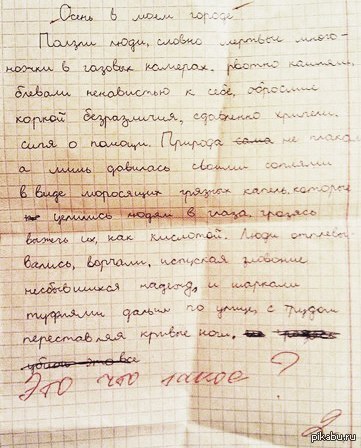 Осень в моем городе.
Ползли люди, словно мертвые много-
ножки в газовых камерах, рвотно кашляли,
блевали ненавистью к себе, обросшие
коркой безразличия, сдавленно хрипели,
сипя о помощи. Природа сама не плакала
а лишь давилась своими соплями
в виде моросящих грязных капель, которые
целились людям в глаза, грозясь
выжечь их, как кислотой. Люди отплевы-
вались, ворчали, испуская зловоние
несбывшихся надежд, и шаркали
туфлями дальше по улице, с трудом
переставляя кривые ноги.
убейте это все
Это что такое ?
pikabu.ru